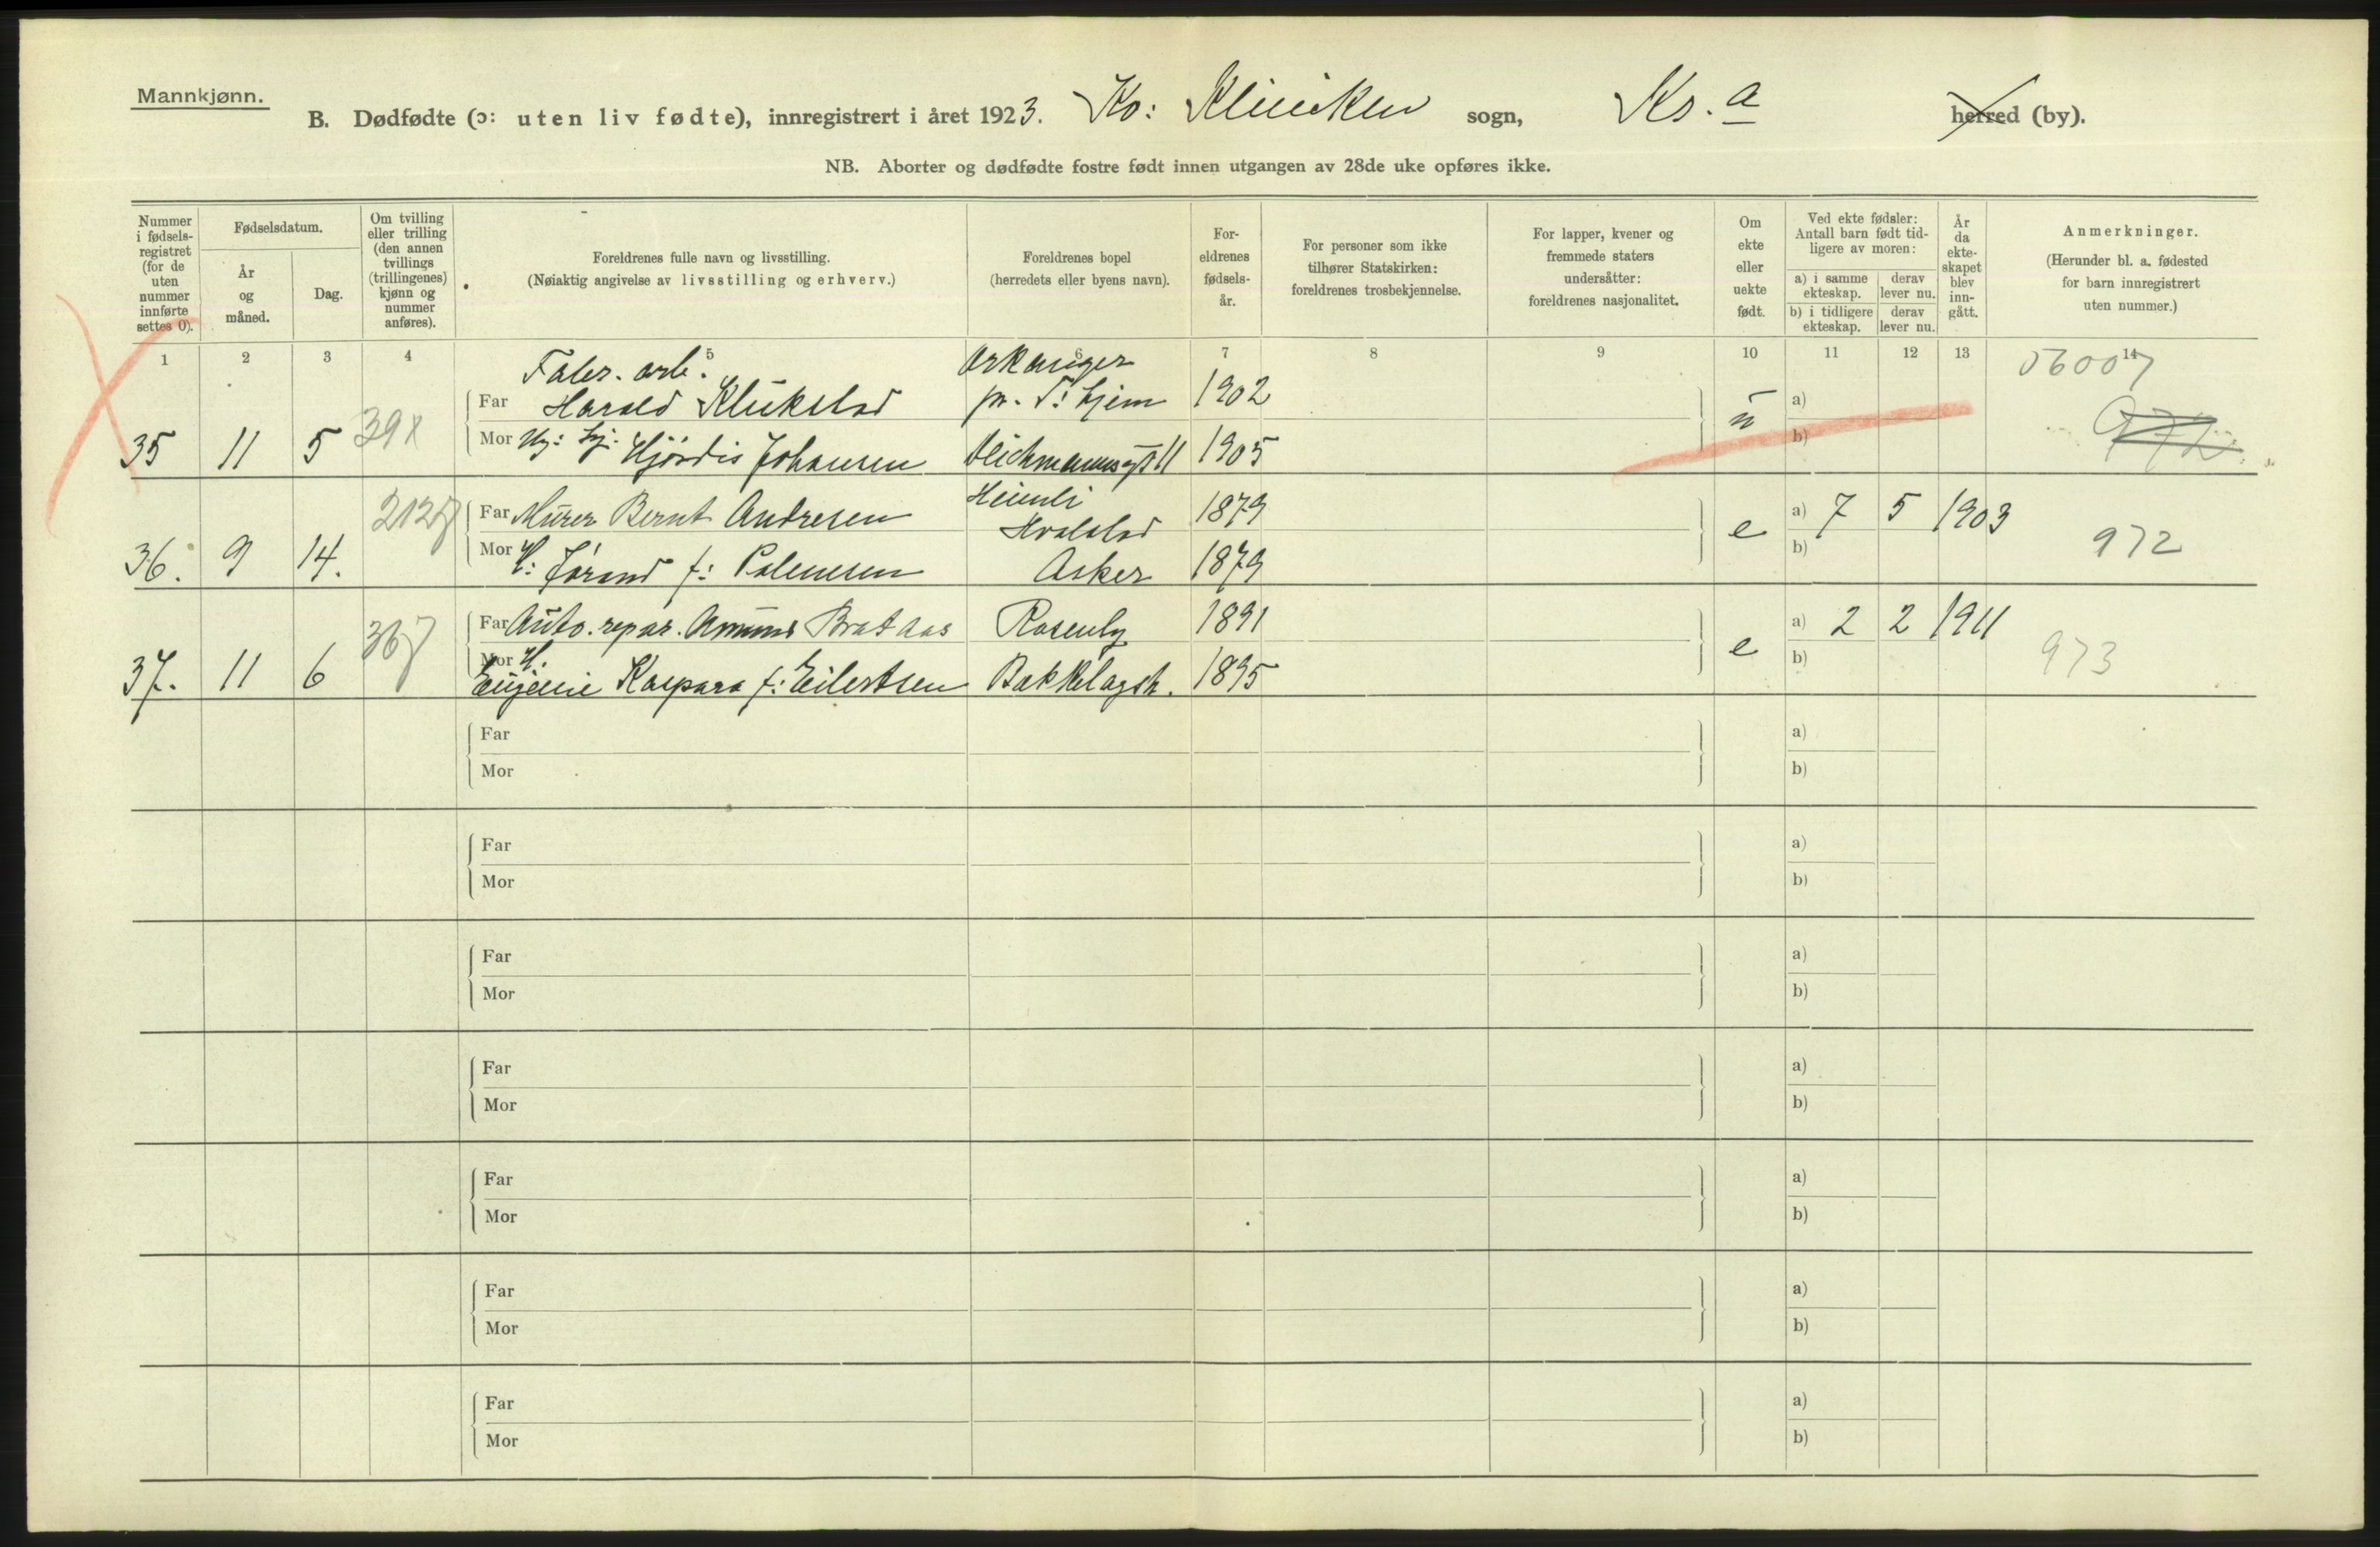 Mannkjønn.
B. Dødfødte (ɔ: uten liv fødte), innregistrert i året 1923. Kv: Kliniken sogn, Kr.a herred (by).
NB. Aborter og dødfødte fostre født innen utgangen av 28de uke opføres ikke.
Nummer i fødsels-registret (for de uten nummer innførte settes 0).
Fødselsdatum.
År og måned.
Dag.
Om tvilling eller trilling (den annen tvillings (trillingenes) kjønn og nummer anføres).
Foreldrenes fulle navn og livsstilling.
(Nøiaktig angivelse av livsstilling og erhverv.)
Foreldrenes bopel
(herredets eller byens navn).
For-eldrenes fødsels-år.
For personer som ikke tilhører Statskirken: foreldrenes trosbekjennelse.
For lapper, kvener og fremmede staters undersåtter: foreldrenes nasjonalitet.
Om ekte eller uekte født.
Ved ekte fødsler: Antall barn født tid-ligere av moren:
a) i samme ekteskap.
derav lever nu.
b) i tidligere ekteskap.
derav lever nu.
År da ekte-skapet blev inn-gått.
Anmerkninger.
(Herunder bl. a. fødested for barn innregistrert uten nummer.)
1 2 3 4 5 6 7 8 9 10 11 12 13 14
Fabr. arb. Orkanger 06007
Far Harald Klukstad pr. T: hjem 1902 u a)
35 11 5 398 Mor Hjørdis Johansen Deichmannsgt 11 1905 b) 972
2127 Far Murer Bernt Andresen Heimli Hvalstad 1879 e a) 7 5 1903
36. 9 14. Mor H: Jørand f: Asker 1879 b) 972
367 Far Auto. repar. Amund Brataas Rosenly 1891 e a) 2 2 1911
37. 11 6 Mor H. Eugenie Kaspara f: Eilertsen Bækkelagsh. 1895 b) 973
Far a)
Mor b)
Far a)
Mor b)
Far a)
Mor b)
Far a)
Mor b)
Far a)
Mor b)
Far a)
Mor b)
Far a)
Mor b)